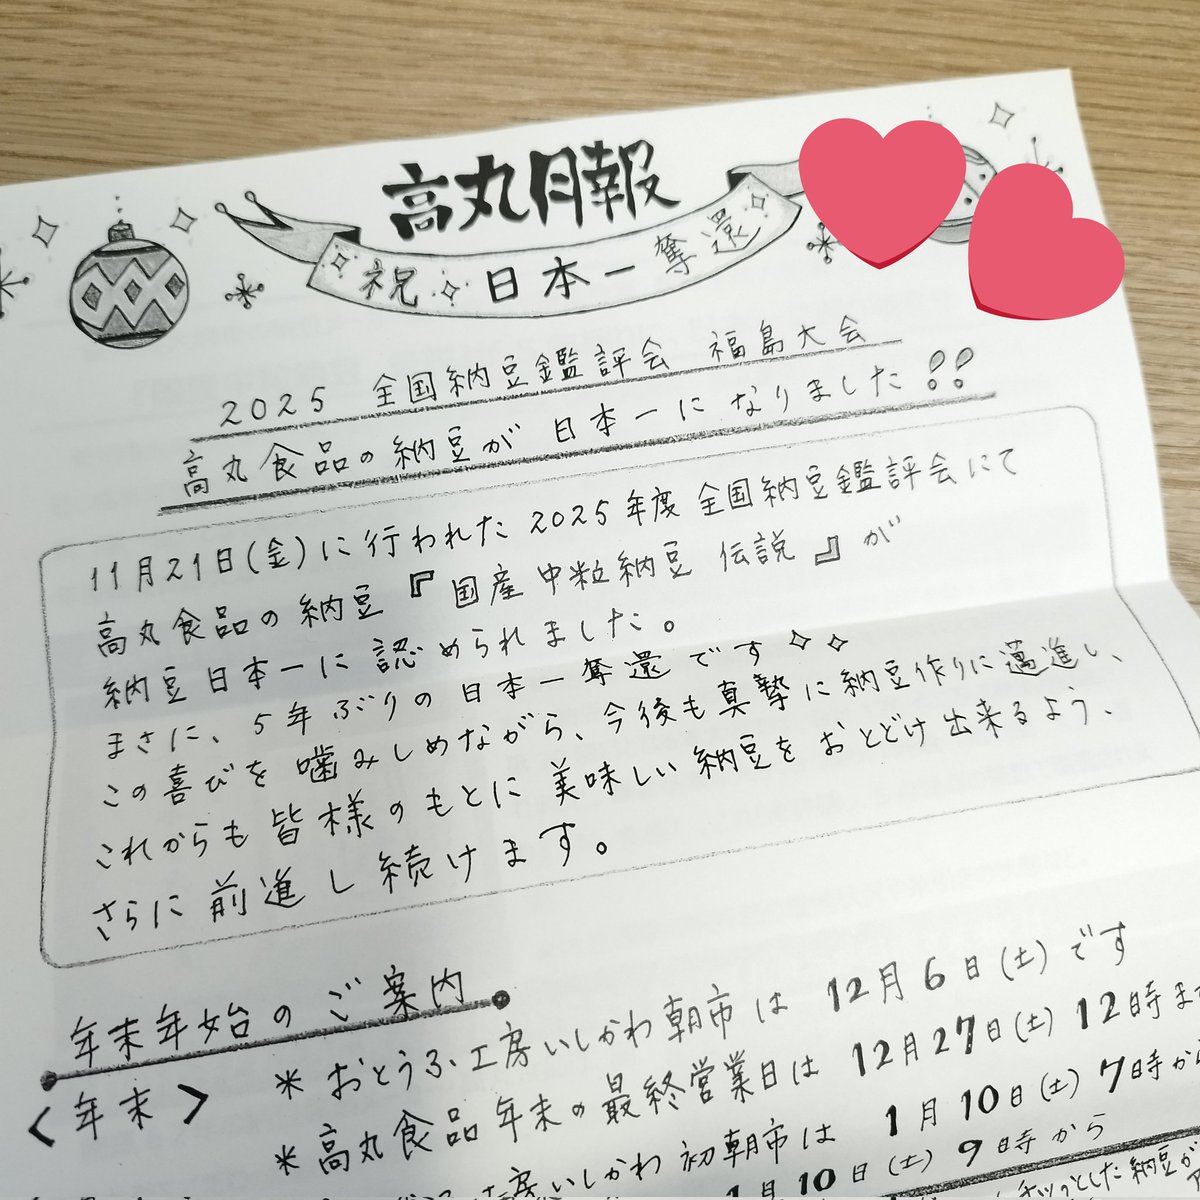 高丸月報
祝 日本一奪還
2025 全国納豆鑑評会 福島大会
高丸食品の納豆が日本一になりました!!
11月21日(金)に行われた2025年度全国納豆鑑評会にて
高丸食品の納豆『国産中粒納豆 伝説』が
納豆日本一に認められました。
まさに、5年ぶりの日本一奪還です
この喜びを噛みしめながら、今後も真摯に納豆作りに邁進し、
これからも皆様のもとに美味しい納豆をおとどけ出来るよう、
さらに前進し続けます。
年末年始のご案内
<年末>
*おとうふ工房いしかわ朝市は 12月6日(土)です
*高丸食品年末の最終営業日は 12月27日(土)12時ま
工房いしかわ初朝市は 1月10日(土)7時から
1月10日(土)9時から
した納豆が